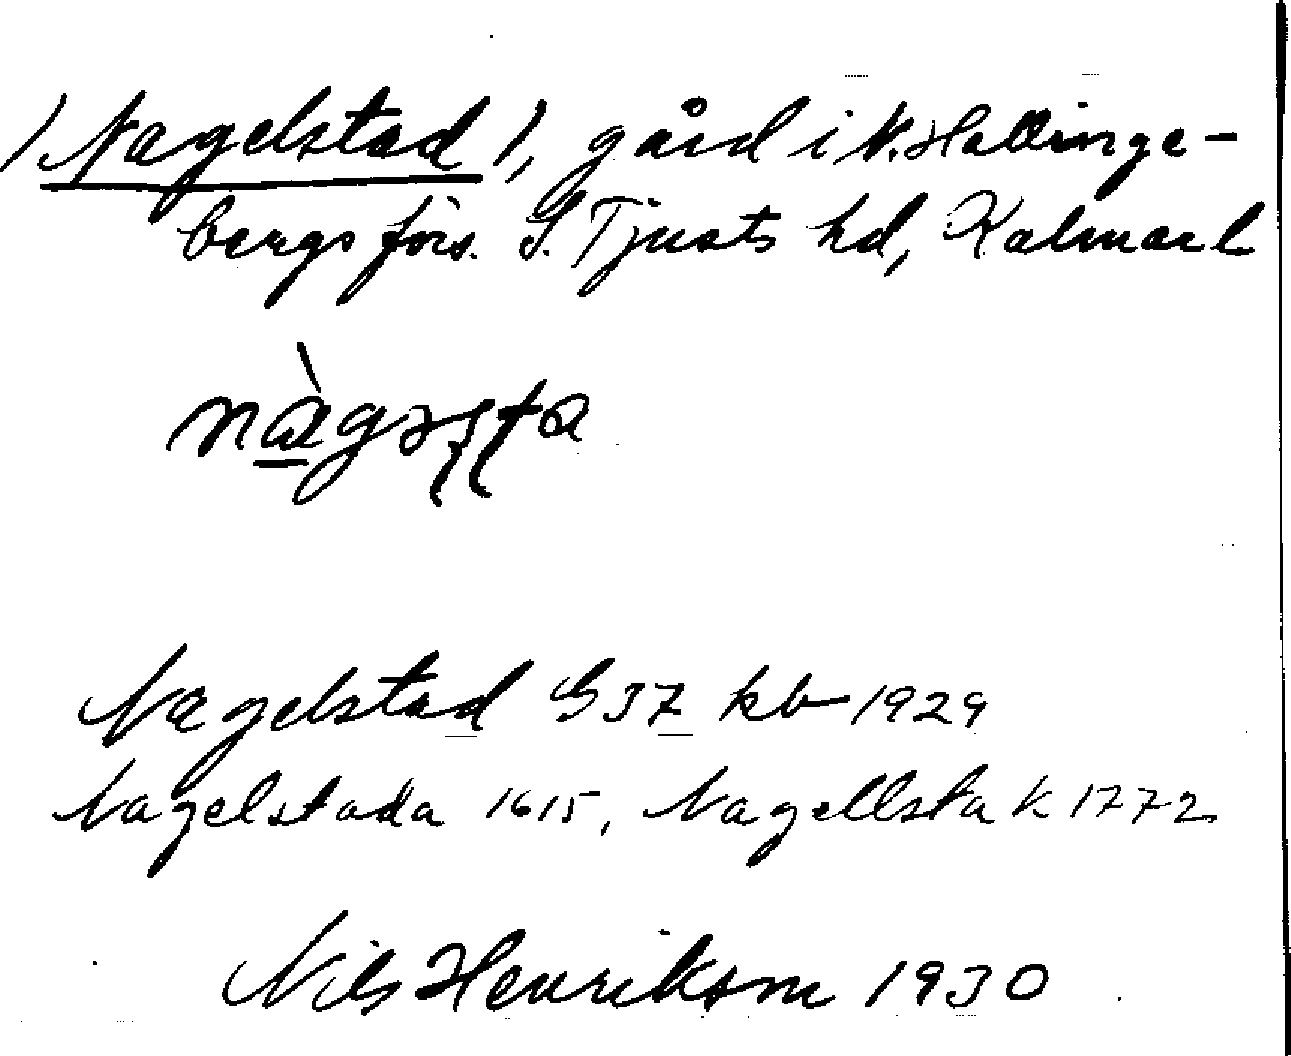 ) Nagelstad ), gård i N. Hallinge-
bergs förs. S. Tjusts hd, Kalmar l
Nagelstad G 37 kb 1929
Nagelstada 1615, Nagellsta k 1772
Nils Henriksson 1930